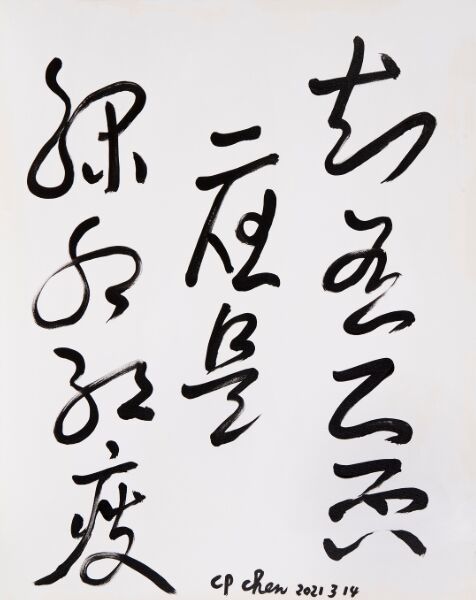 知否知否
應是
綠肥紅瘦
CP Chen 2021 3 14